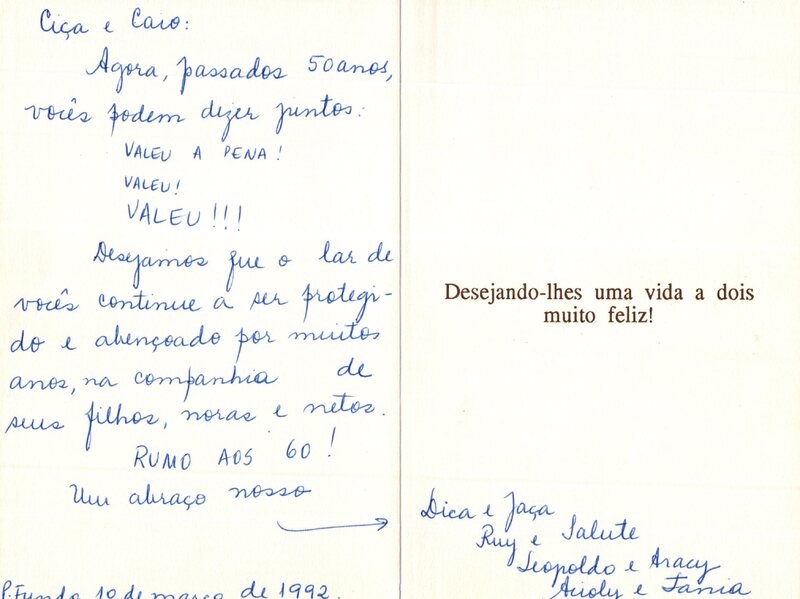 Ciça e Caio:
Agora, passados 50 anos,
vocês podem dizer juntos:
VALEU A PENA!
VALEU!
VALEU!!!
Desejamos que o lar de
vocês continue a ser protegi-
do e abençoado por muitos
anos, na companhia de
seus filhos, noras e netos.
RUMO AOS 60!
Um abraço nosso
P. Fundo, 1º de março de 1992.
Desejando-lhes uma vida a dois
muito feliz!
Dica e Jaça
Ruy e Salute
Leopoldo e Aracy
e Tania